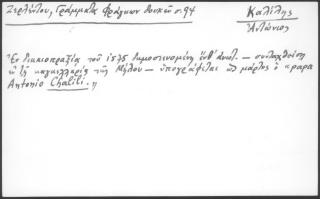 Ζερλέντου, Γράμματα Φράγκων Δουκῶν σ. 94
Καλίλης
Ἀντώνιος
Ἐν δικαιοπραξίᾳ τοῦ 1575 δημοσιευομένῃ ἔνθ' ἀνωτ. — συνταχθείσῃ
ἐν τῇ καγκελλαρίᾳ τῆς Μήλου — ὑπογράφεται ὡς μάρτυς ὁ
Antonio Chalili. "